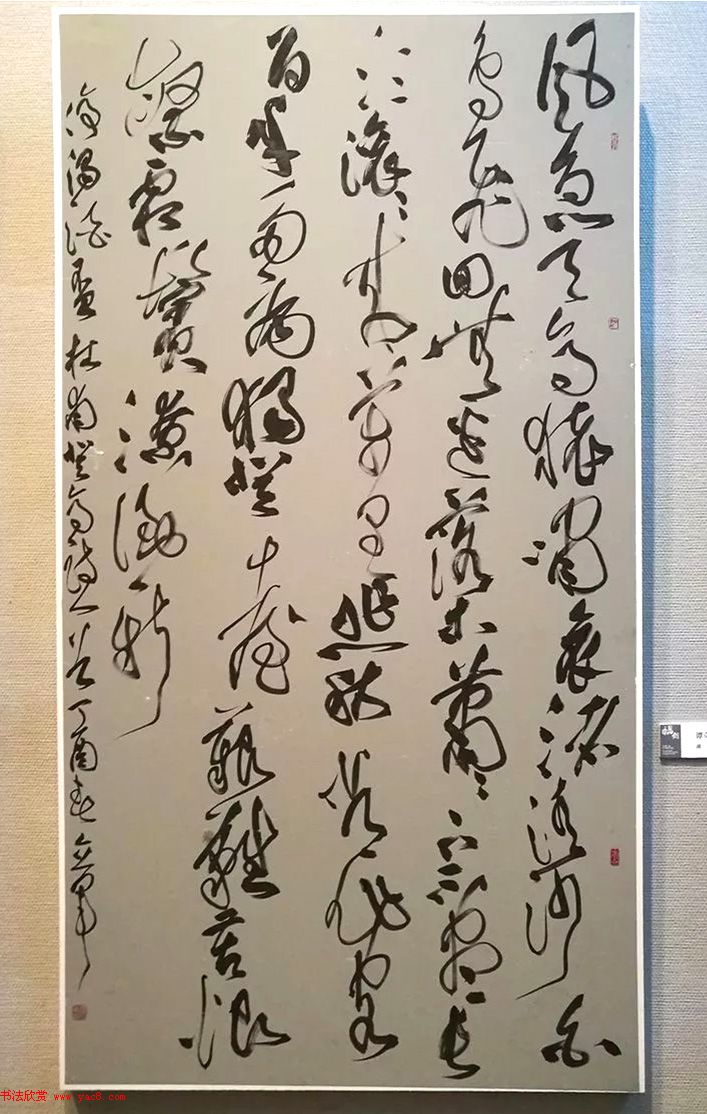 風急天高猿嘯哀渚清沙白
鳥飛回無邊落木蕭蕭下不盡長
江滚滚來萬里悲秋常作客
百年多病獨登臺艱難苦恨
繁霜鬢潦倒新
停濁酒杯杜甫登高詩一首丁酉春
书法欣赏 www.yac8.com